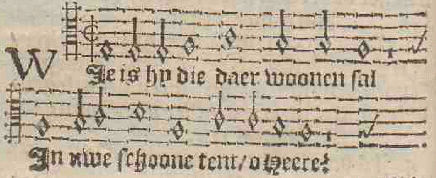 WIe is hy die daer woonen sal
In uwe schoone tent/o Heere?